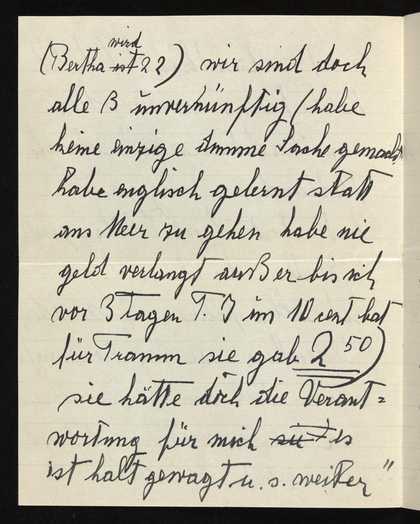 (Bertha ist wird 22) wir sind doch
alle 3 unvernünftig (habe
keine einzige dumme Sache gemacht
habe englisch gelernt statt
ans Meer zu gehen habe nie
geld verlangt außer bis ich
vor 3 tagen T. J um 10 cent bat
für Tramm sie gab 2 50)
sie hätte doch die Verant=
wortung für mich sie es
ist halt gewagt u. s. weiter"